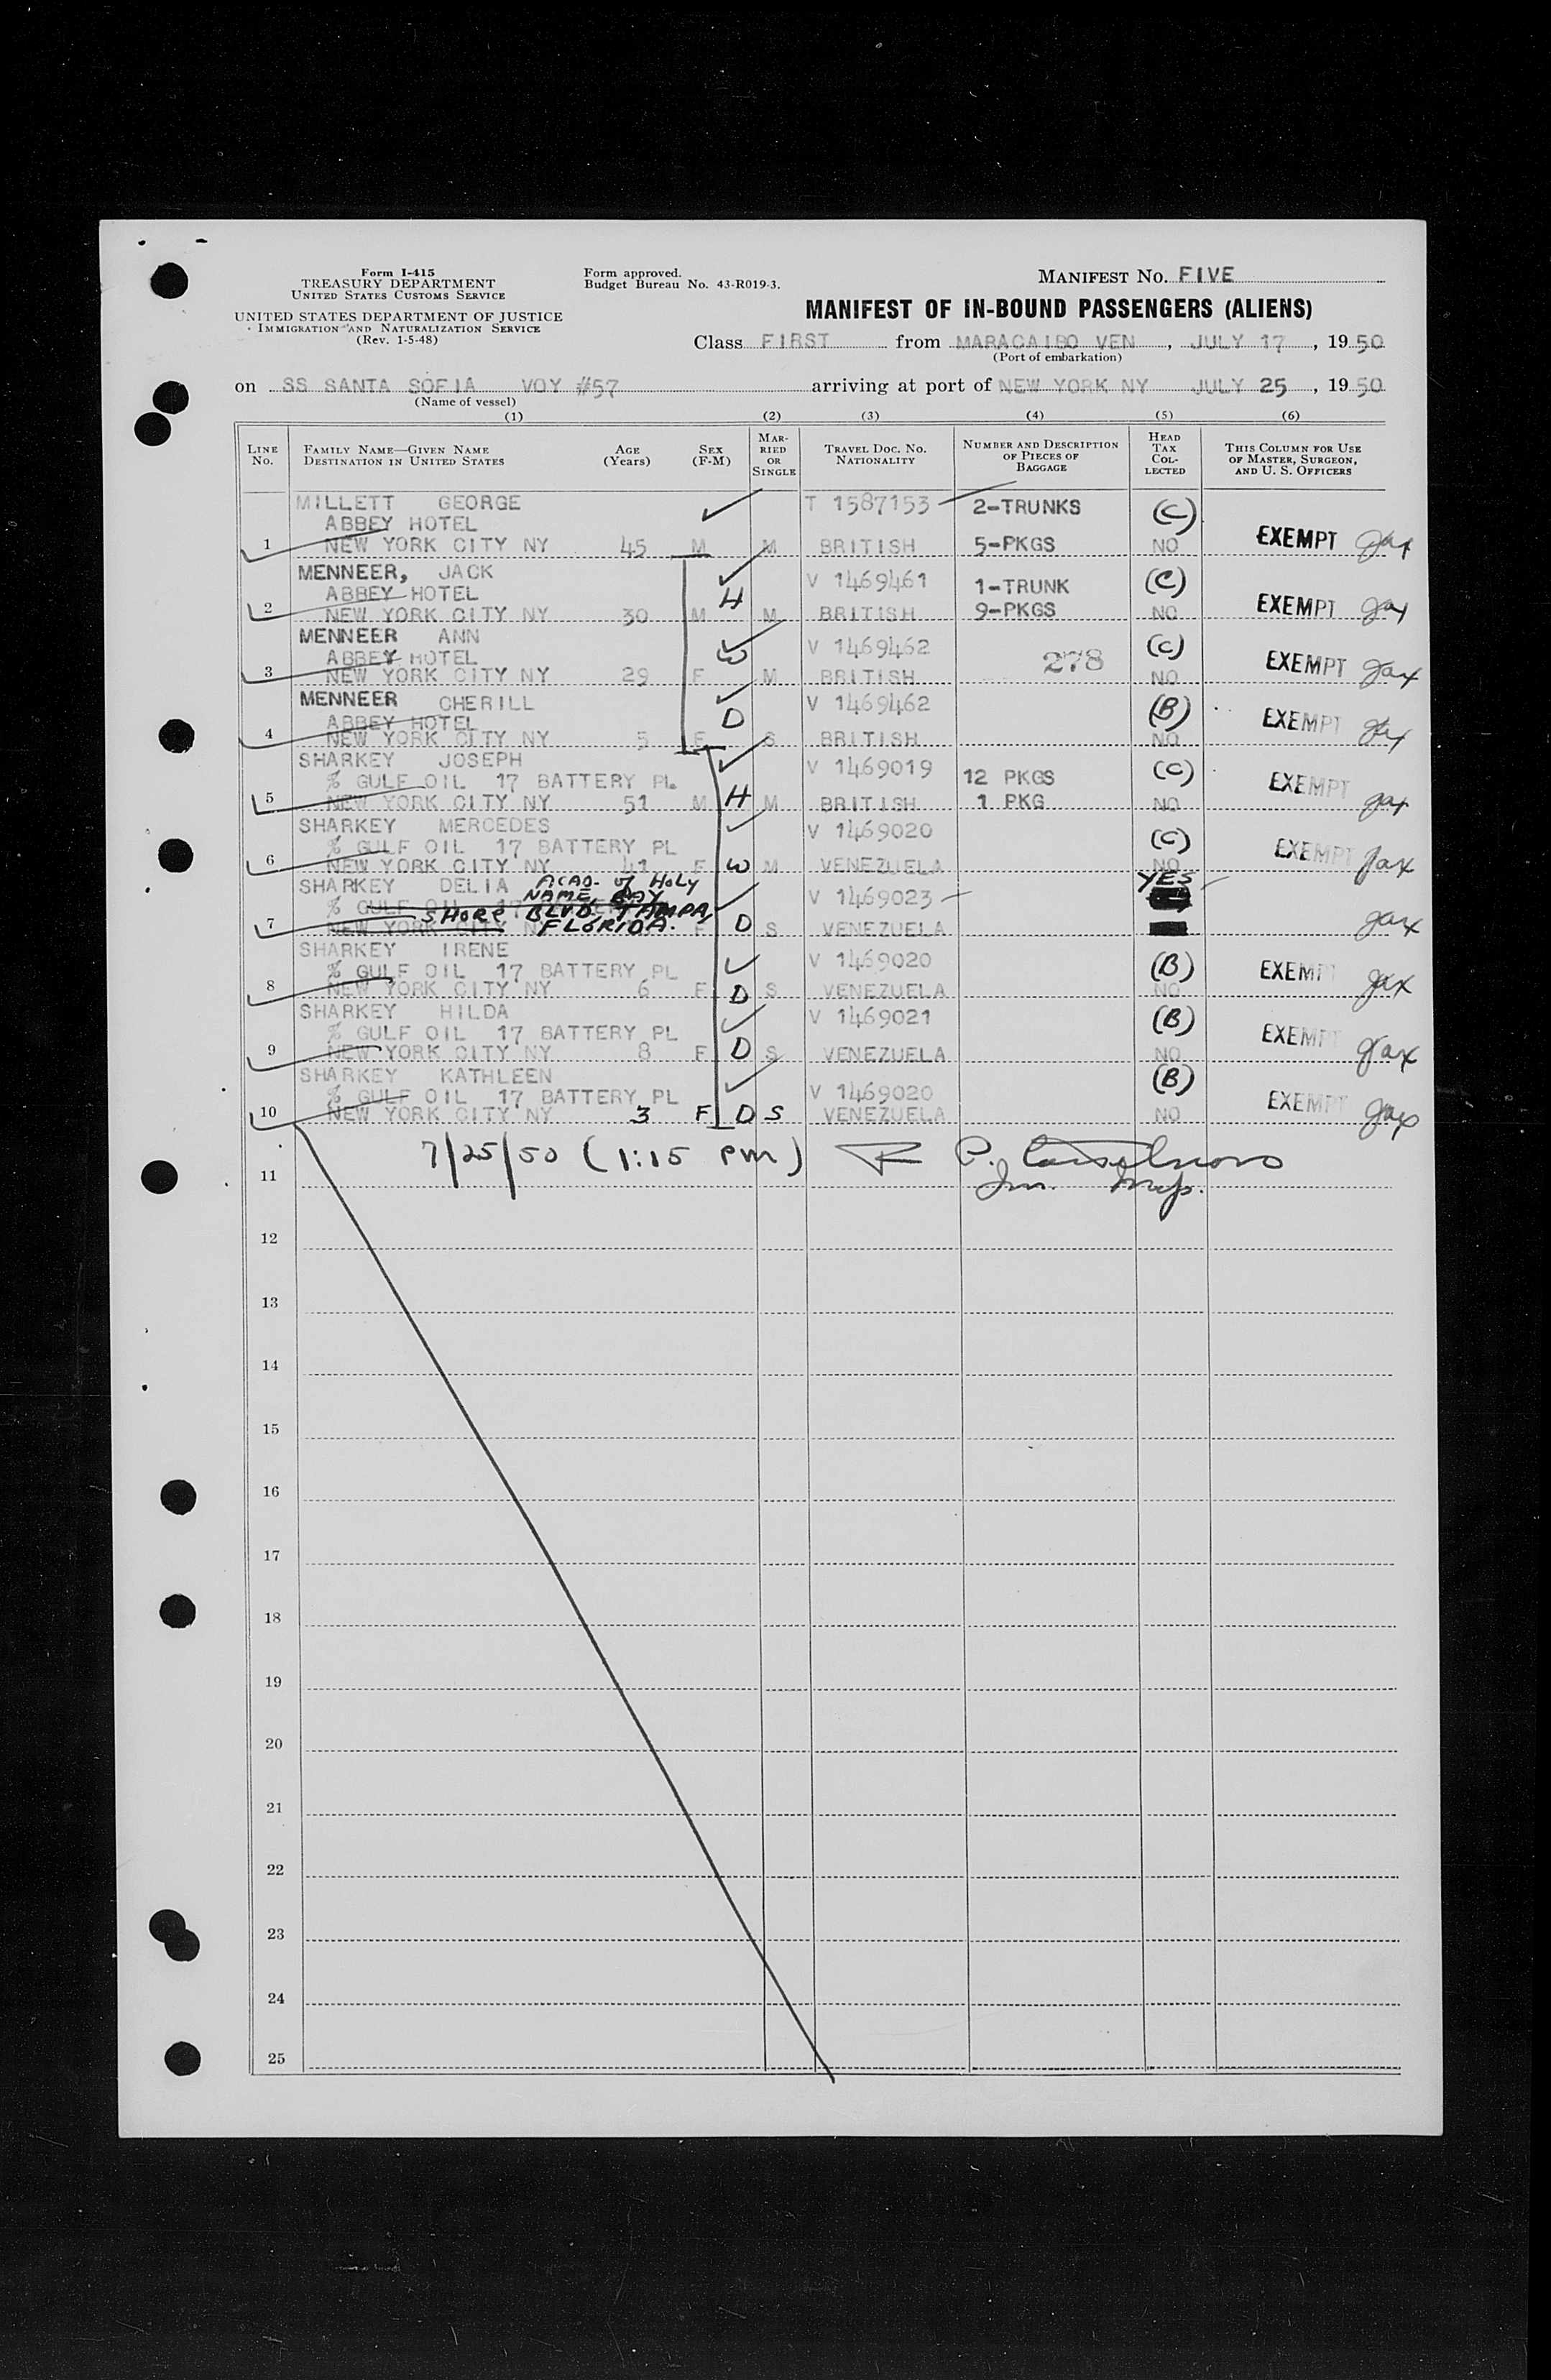 Form I-415
TREASURY DEPARTMENT
UNITED STATES CUSTOMS SERVICE
UNITED STATES DEPARTMENT OF JUSTICE
IMMIGRATION AND NATURALIZATION SERVICE
(Rev. 1-5-48)
Form approved.
Budget Bureau No. 43-R019-3.
MANIFEST No. FIVE
MANIFEST OF IN-BOUND PASSENGERS (ALIENS)
Class FIRST from MARACAIBO VEN, JULY 17, 1950
(Port of embarkation)
on SS SANTA SOFIA VOY #57 arriving at port of NEW YORK NY JULY 25, 1950
(Name of vessel)
(1) (2) (3) (4) (5) (6)
LINE No. FAMILY NAME—GIVEN NAME DESTINATION IN UNITED STATES AGE (Years) SEX (F-M) MARRIED OR SINGLE TRAVEL DOC. NO. NATIONALITY NUMBER AND DESCRIPTION OF PIECES OF BAGGAGE HEAD TAX COLLECTED THIS COLUMN FOR USE OF MASTER, SURGEON, AND U. S. OFFICERS
MILLETT GEORGE T 1587153 2-TRUNKS (C)
ABBEY HOTEL
1 NEW YORK CITY NY 45 M M BRITISH 5-PKGS NO EXEMPT
MENNEER, JACK V 1469461 1-TRUNK (C)
ABBEY HOTEL H
2 NEW YORK CITY NY 30 M M BRITISH 9-PKGS NO EXEMPT
MENNEER ANN V 1469462 (C)
ABBEY HOTEL W 278
3 NEW YORK CITY NY 29 F M BRITISH NO EXEMPT
MENNEER CHERILL V 1469462 (B)
ABBEY HOTEL D
4 NEW YORK CITY NY 5 F S BRITISH NO EXEMPT
SHARKEY JOSEPH V 1469019 (C)
% GULF OIL 17 BATTERY PL 12 PKGS
5 NEW YORK CITY NY 51 M H M BRITISH 1 PKG NO EXEMPT
SHARKEY MERCEDES V 1469020 (C)
% GULF OIL 17 BATTERY PL
6 NEW YORK CITY NY 41 F W M VENEZUELA NO EXEMPT
SHARKEY DELIA ACAD. of HOLY V 1469023 YES
% GULF OIL 17 NAME, BAY
SHORE BLVD. TAMPA,
7 NEW YORK CITY FLORIDA. F D S VENEZUELA
SHARKEY IRENE V 1469020 (B)
% GULF OIL 17 BATTERY PL
8 NEW YORK CITY NY 6 F D S VENEZUELA NO EXEMPT
SHARKEY HILDA V 1469021 (B)
% GULF OIL 17 BATTERY PL
9 NEW YORK CITY NY 8 F D S VENEZUELA NO EXEMPT
SHARKEY KATHLEEN V 1469020 (B)
% GULF OIL 17 BATTERY PL
10 NEW YORK CITY NY 3 F D S VENEZUELA NO EXEMPT
7/25/50 (1:15 PM)
Im. Insp.
11
12
13
14
15
16
17
18
19
20
21
22
23
24
25